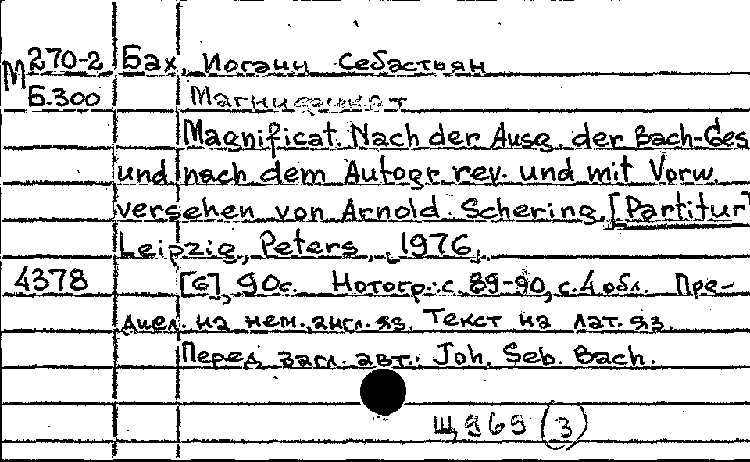 М 270-2 Бах, Иоганн Себастьян
Б.300 Магнификат
Magnificat. Nach der Ausg. der Bach-Ges
und nach dem Autogr. rev. und mit Vorw.
versehen von Arnold Schering. [Partitur]
Leipzig, Peters, [1976].
4378 [6], 90с. Нотогр.: с. 89-90, с.4 обл. Пре-
дисл. на нем., англ. яз. Текст на лат. яз.
Перед загл. авт.: Joh. Seb. Bach.
Щ 969 (3)